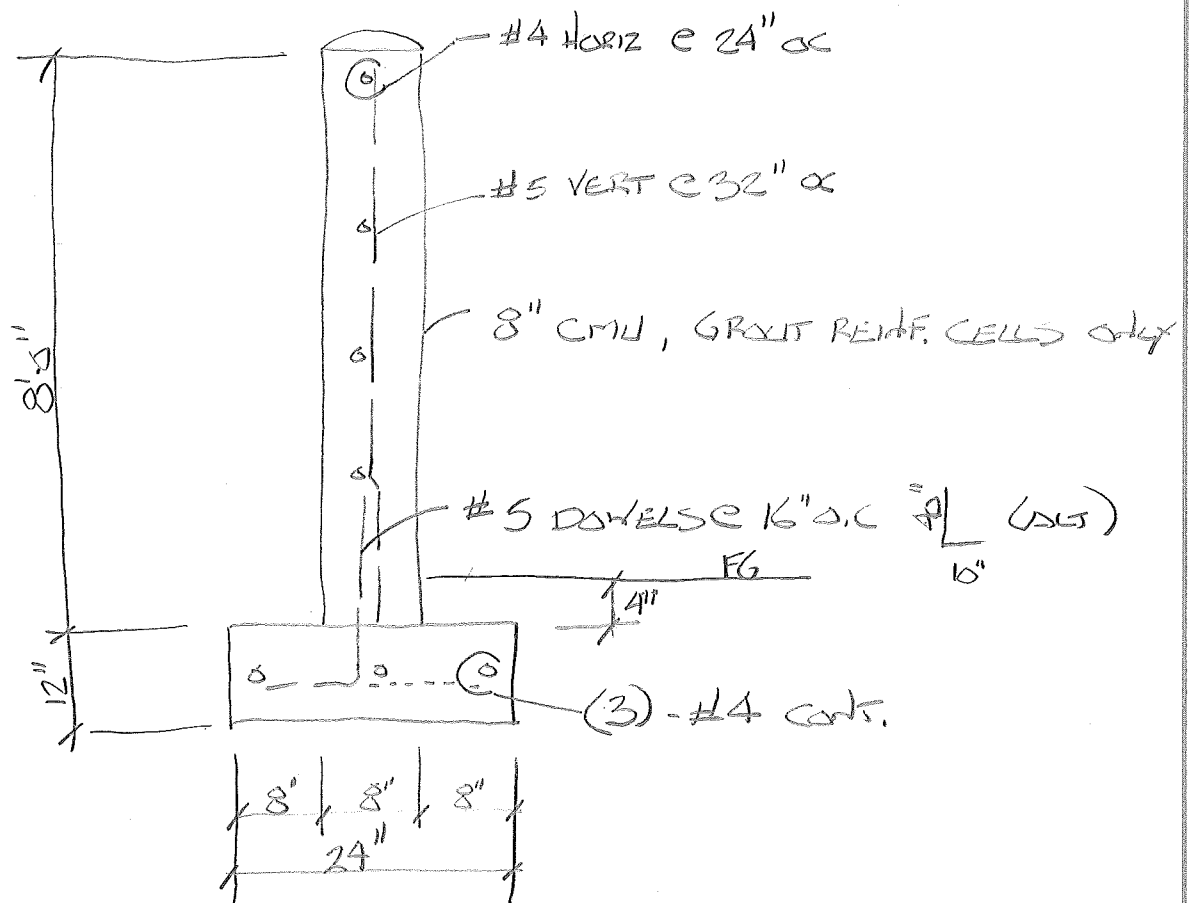 #4 HORIZ @ 24" OC
#5 VERT @ 32" OC
8" CMU, GROUT REINF. CELLS ONLY
8'-0"
#5 DOWELS @ 16" O.C (ALT)
10"
FG
4"
12"
(3) - #4 CONT.
8" 8" 8"
24"